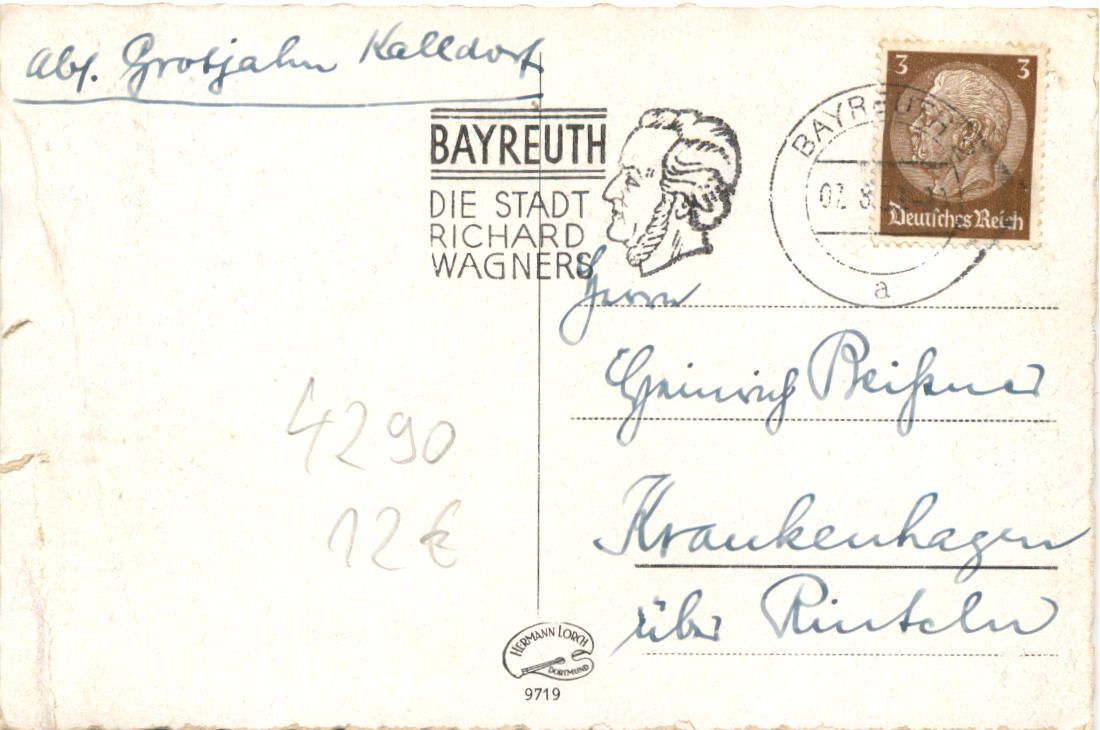 Abs. Grotjahn Kalldorf
BAYREUTH
DIE STADT
RICHARD
WAGNERS
BAYREUTH
07. 8.
a
3 3
Deutsches Reich
Herrn
Heinrich Beißner
Krankenhagen
über Rinteln
4290
12€
HERMANN LORCH
DORTMUND
9719